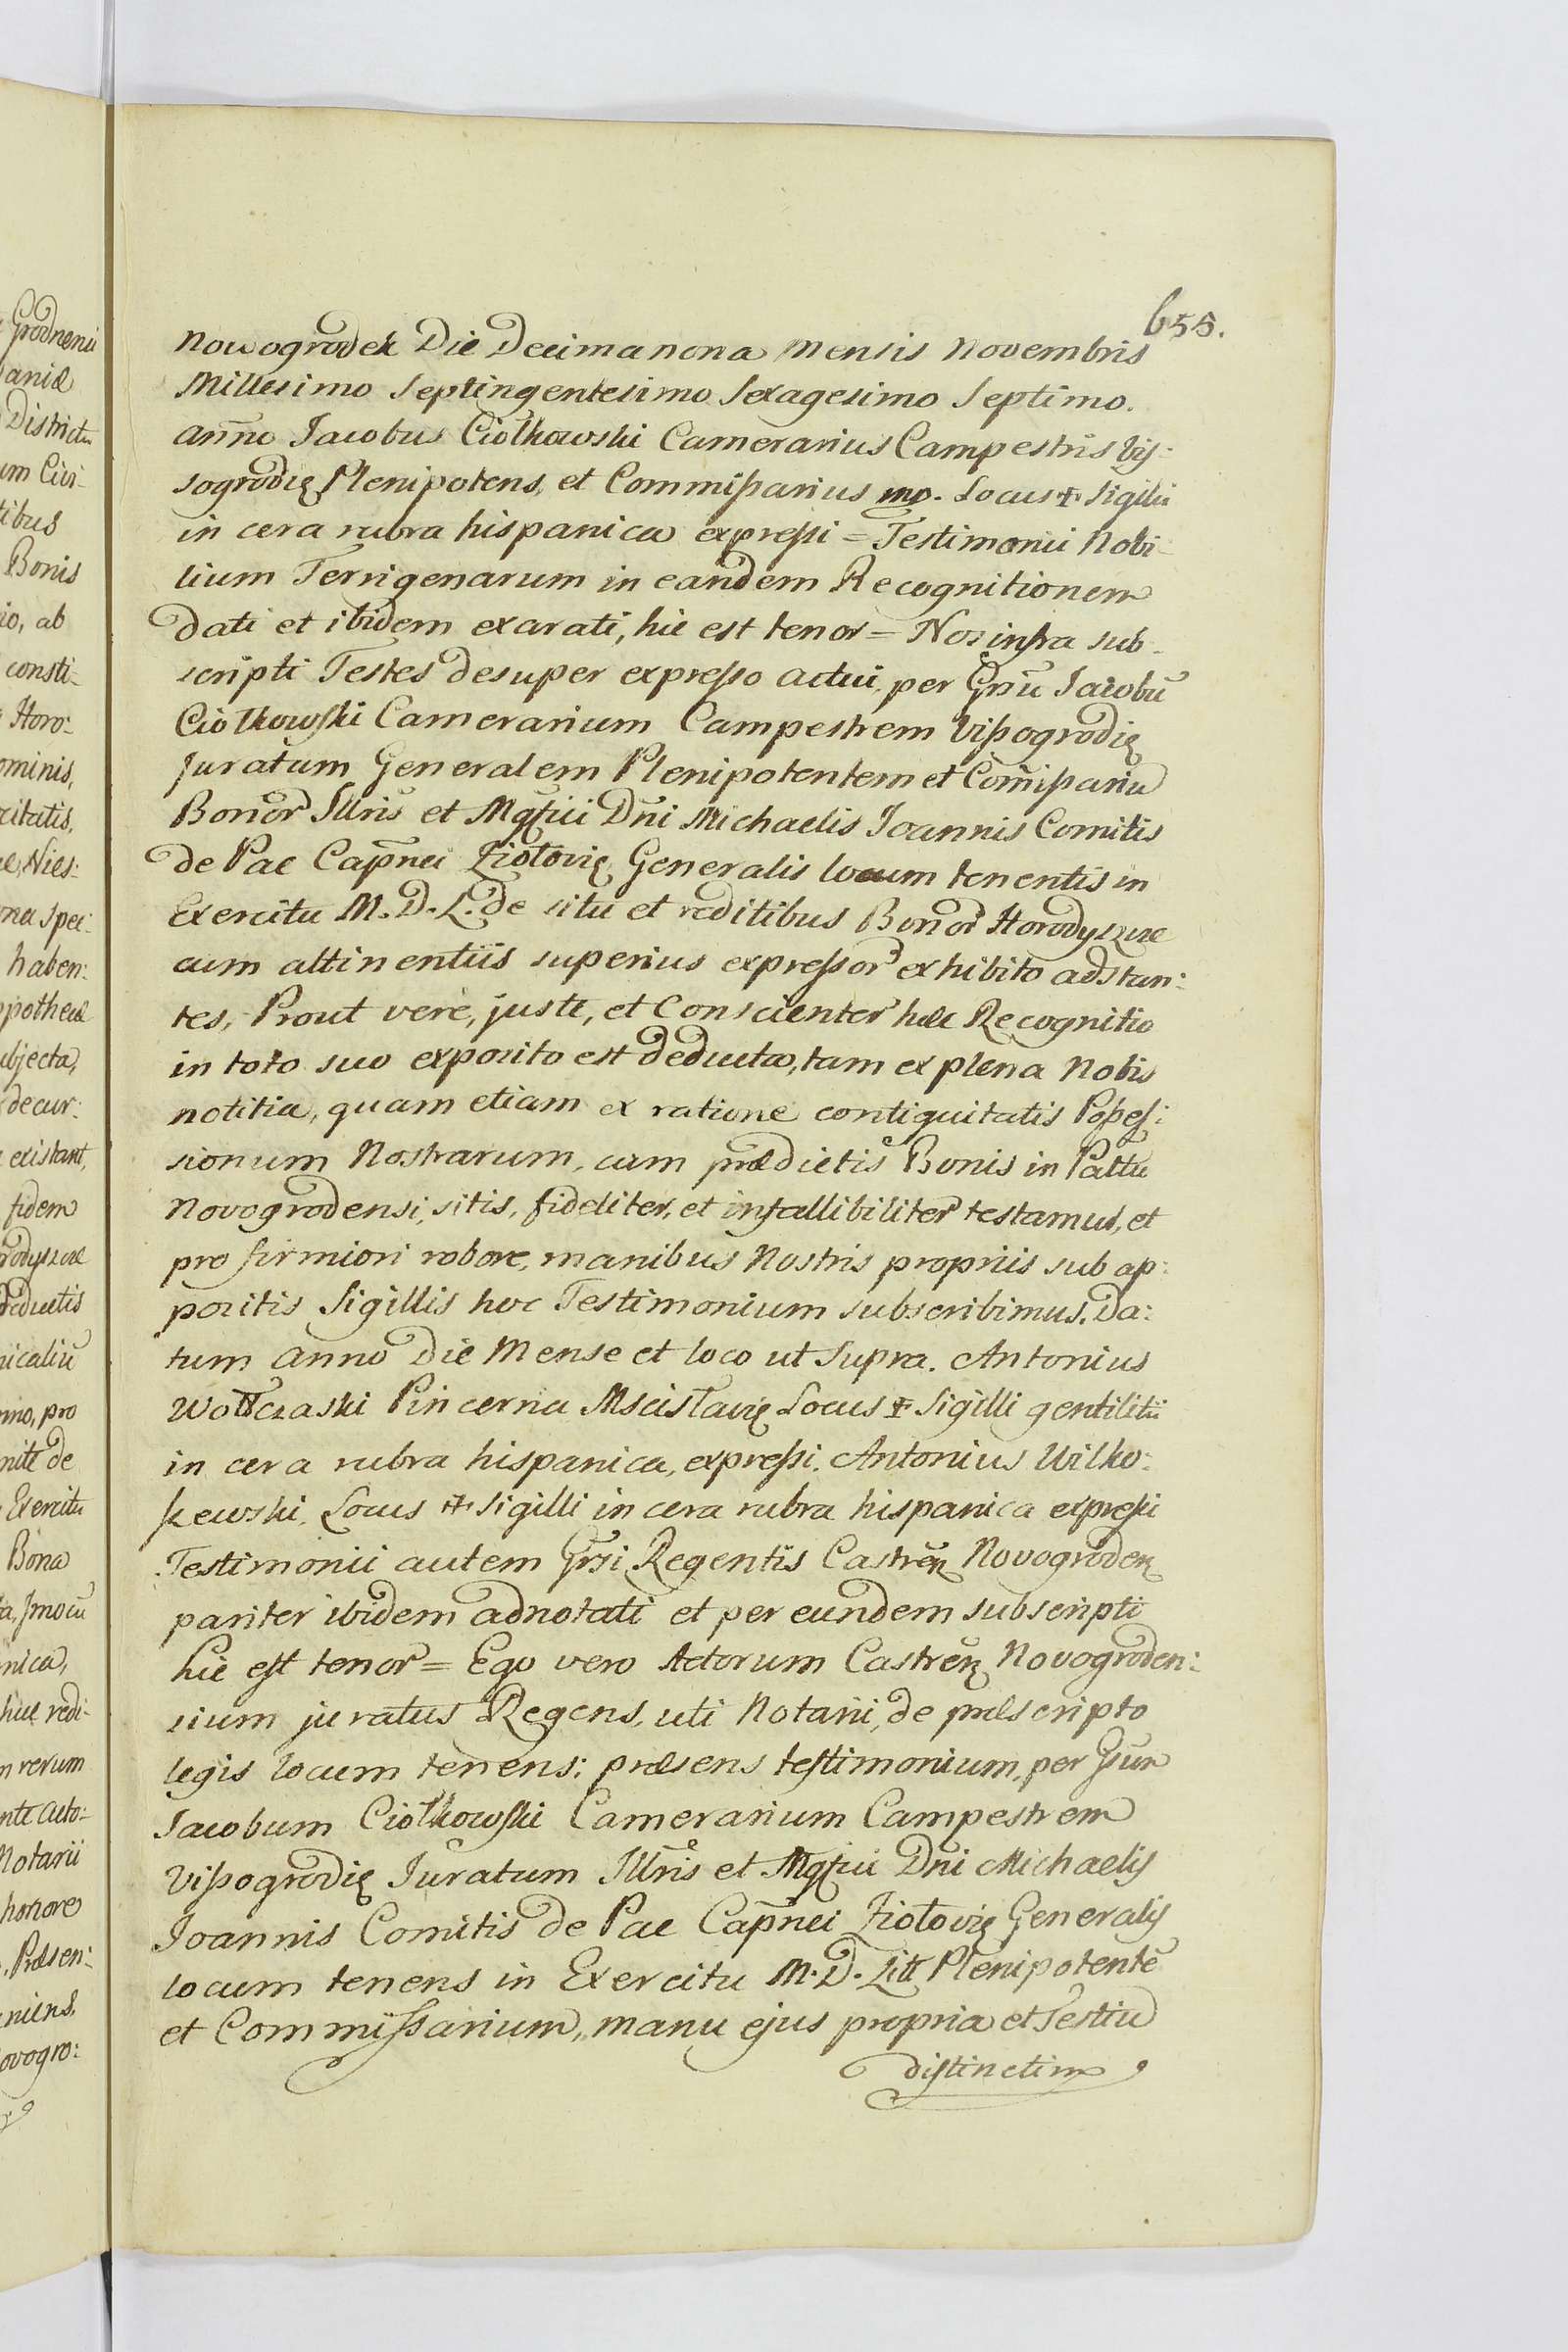 655.
Nowogrodek Die Decima nona Mensis Novembris
Millesimo Septingentesimo Sexagesimo Septimo.
añno Jacobus Ciołkowski Camerarius Campestris Vis:
sogrodię Plenipotens, et Commißarius mp. Locus ✝ Sigilli
in cera rubra hispanica expreßi = Testimonii Nobi:
lium Terrigenarum in eandem Recognitionem
dati et ibidem exarati, hic est tenor = Nos infra sub-
scripti Testes desuper expreßo actui, per Gnsũ Jacobũ
Ciołkowski Camerarium Campestrem Vißogrodię
Juratum Generalem Plenipotentem et Com̃ißariũ
Bonor Illris et Mgfici Dñi Michaelis Joannis Comitis
de Pac Cap̃nei Ziołovię Generalis locum tenentis in
Exercitu M. D. L. de situ et reditibus Bonor Horodyszcze
cum attinentiis superius expreßor exhibito adstan:
tes, Prout vere, juste, et Conscienter hæc Recognitio
in toto suo exposito est deducta, tam ex plena Nobis
notitia, quam etiam ex ratione contiguitatis Poßeß:
sionum Nostrarum, cum prædictis Bonis in Pałtu
Novogrodensi, sitis, fideliter, et infallibiliter testamur, et
pro firmiori robore, manibus Nostris propriis sub ap:
positis Sigillis hoc Testimonium subscribimus. Da:
tum Anno Die Mense et loco ut Supra. Antonius
Wołłczaski Pincerna Mscisłavię Locus ✝ Sigilli gentilitii
in cera rubra hispanica, expreßi. Antonius Wilko:
szewski, Locus ✝ Sigilli in cera rubra hispanica expreßi
Testimonii autem Gnsi Regentis Castreñ Novogroden
pariter ibidem adnotati et per eundem subscripti
hic est tenor = Ego vero Actorum Castreñ Novogroden:
sium juratus Regens, uti Notarii, de præscripto
legis locum tenens; præsens testimonium, per Gsum
Jacobum Ciołkowski Camerarium Campestrem
Vißogrodię Juratum Illris et Mgfici Dñi Michaelis
Joannis Comitis de Pac Cap̃nei Ziołovię Generalis
locum tenens in Exercitu M. D. Litt Plenipotentẽ
et Commissarium, manu ejus propria et Testiũ
distinctim

Grodnensi
aniæ
Districtu
um Civi-
tibus
Bonis
io, ab
consti-
Horo:
ominis,
citatis,
Nies:
na spec:
haben:
pothecæ
bjecta,
decur:
existant,
fidem
rodyszcze
deductis
icaliũ
no, pro
nite de
Exercitu
Bona
Imo cũ
nica,
huc redi-
m rerum
nte acto:
Notarii
honore
Præsen:
niens,
ovogro: